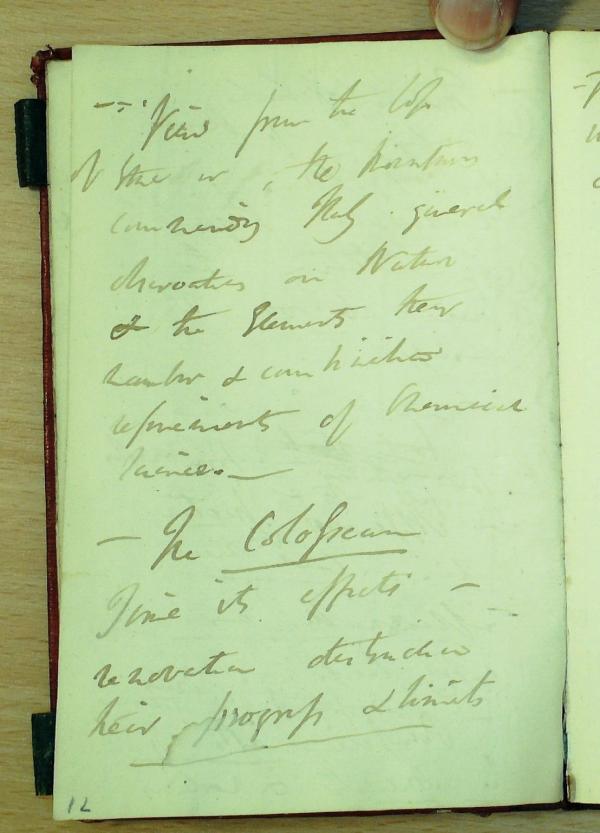 — View from the top
of the
commanding Italy. general
observations on Nature
& the Elements their
number & combinations
refinements of Chemical
Science. —
— The Colosseum
Time its effects —
renovation destruction
their progress & limits
12